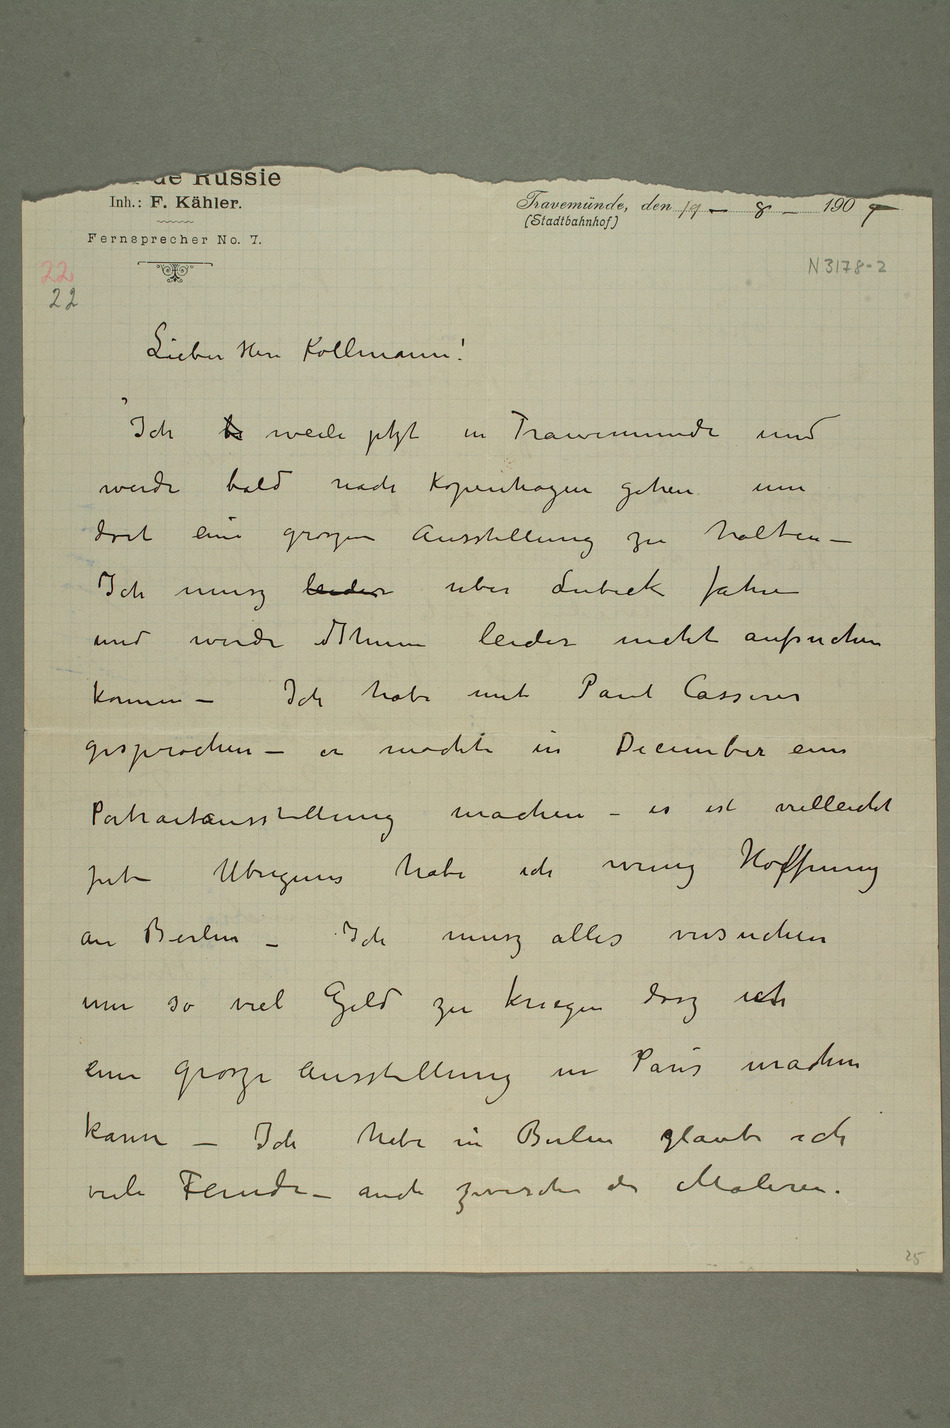 de Russie
Inh.: F. Kähler.
Fernsprecher No. 7.
Travemünde, den 19 – 8 – 190
(Stadtbahnhof)
N 3178-2
22
22
Lieber Herr Kollmann!
Ich weile jetzt in Travemunde und
werde bald nach Kopenhagen gehen um
dort eine groszen Ausstellung zu halten –
Ich musz leider uber Lubeck fahren
und werde Ihnen leider nicht aufsuchen
konnen – Ich habe mit Paul Cassirer
gesprochen – er mochte in December eine
Portraitausstellung machen – es ist vielleicht
gut – Ubrigens habe ich wenig Hoffnung
an Berlin – Ich musz alles versuchen
um so viel Geld zu kriegen dasz ich
eine grosze Ausstellung in Paris machen
kann – Ich habe in Berlin glaube ich
viele Feinde – auch zwischen die Maleren.
25